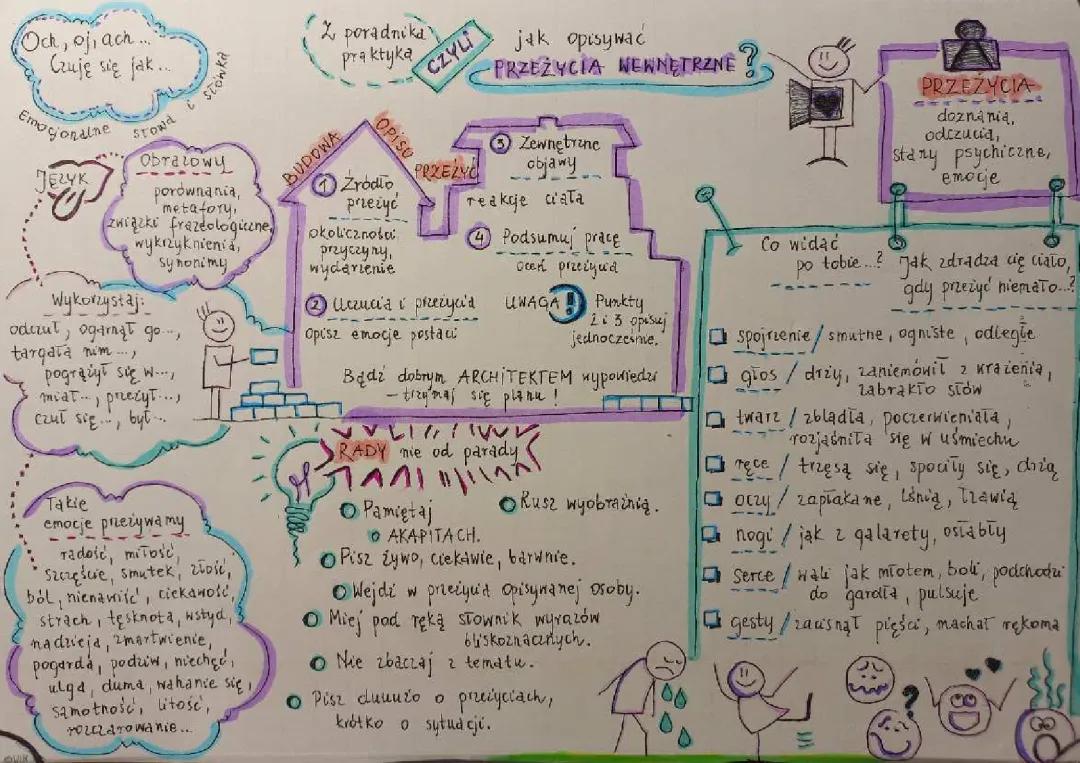 Och, oj, ach...
Czuję się jak...
Emocjonalne słowa i słówka
Z poradnika
praktyka
CZYLI
jak opisywać
PRZEŻYCIA WEWNĘTRZNE?
PRZEŻYCIA
doznania,
odczucia,
stany psychiczne,
emocje
JĘZYK
Obrazowy
porównania,
metafory,
związki frazeologiczne,
wykrzyknienia,
synonimy
Wykorzystaj:
odczuł, ogarnął go...,
targała nim...,
pogrążył się w...,
miał..., przeżył...,
czuł się..., był...
Takie
emocje przeżywamy
radość, miłość,
szczęście, smutek, złość,
ból, nienawiść, ciekawość,
strach, tęsknota, wstyd,
nadzieja, zmartwienie,
pogarda, podziw, niechęć,
ulga, duma, wahanie się,
samotność, litość,
rozczarowanie...
BUDOWA OPISU PRZEŻYĆ
1 Źródło
przeżyć
okoliczności,
przyczyny,
wydarzenie
2 Uczucia i przeżycia
opisz emocje postaci
3 Zewnętrzne
objawy
reakcje ciała
4 Podsumuj pracę
oceń przeżycia
UWAGA! Punkty
2 i 3 opisuj
jednocześnie.
Bądź dobrym ARCHITEKTEM wypowiedzi
- trzymaj się planu!
RADY nie od parady
Pamiętaj
o AKAPITACH.
Rusz wyobraźnią.
Pisz żywo, ciekawie, barwnie.
Wejdź w przeżycia opisywanej osoby.
Miej pod ręką słownik wyrazów
bliskoznacznych.
Nie zbaczaj z tematu.
Pisz duuużo o przeżyciach,
krótko o sytuacji.
Co widać
po tobie...?
Jak zdradza cię ciało,
gdy przeżyć niemało...?
spojrzenie / smutne, ogniste, odległe
głos / drży, zaniemówił z wrażenia,
zabrakło słów
twarz / zbladła, poczerwieniała,
rozjaśniła się w uśmiechu
ręce / trzęsą się, spociły się, drżą
oczy / zapłakane, lśnią, łzawią
nogi / jak z galarety, osłabły
serce / wali jak młotem, boli, podchodzi
do gardła, pulsuje
gesty / zacisnął pięści, machał rękoma
?